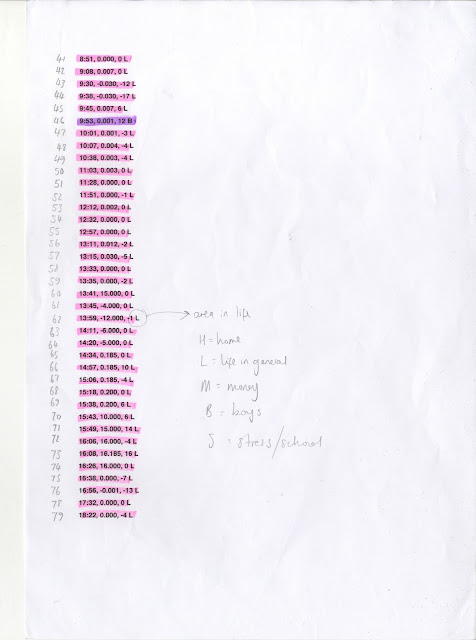 41 8:51, 0.000, 0 L
42 9:08, 0.007, 0 L
43 9:30, -0.030, -12 L
44 9:38, -0.030, -17 L
45 9:45, 0.007, 6 L
46 9:53, 0.001, 12 B
47 10:01, 0.001, -3 L
48 10:07, 0.004, -4 L
49 10:38, 0.003, -4 L
50 11:03, 0.003, 0 L
51 11:28, 0.000, 0 L
52 11:51, 0.000, -1 L
53 12:12, 0.002, 0 L
54 12:32, 0.000, 0 L
55 12:57, 0.000, 0 L
56 13:11, 0.012, -2 L
57 13:15, 0.030, -5 L
58 13:33, 0.000, 0 L
59 13:35, 0.000, -2 L
60 13:41, 15.000, 0 L
61 13:45, -4.000, 0 L
62 13:59, -12.000, -1 L area in life
63 14:11, -6.000, 0 L
64 14:20, -5.000, 0 L H = home
65 14:34, 0.185, 0 L
66 14:57, 0.185, 10 L L = life in general
67 15:06, 0.185, -4 L
68 15:18, 0.200, 0 L M = money
69 15:38, 0.200, 6 L
70 15:43, 10.000, 6 L B = boys
71 15:49, 15.000, 14 L
72 16:06, 16.000, -4 L S = stress/school
73 16:08, 16.185, 16 L
74 16:26, 16.000, 0 L
75 16:38, 0.000, -7 L
76 16:56, -0.001, -13 L
78 17:32, 0.000, 0 L
79 18:22, 0.000, -4 L